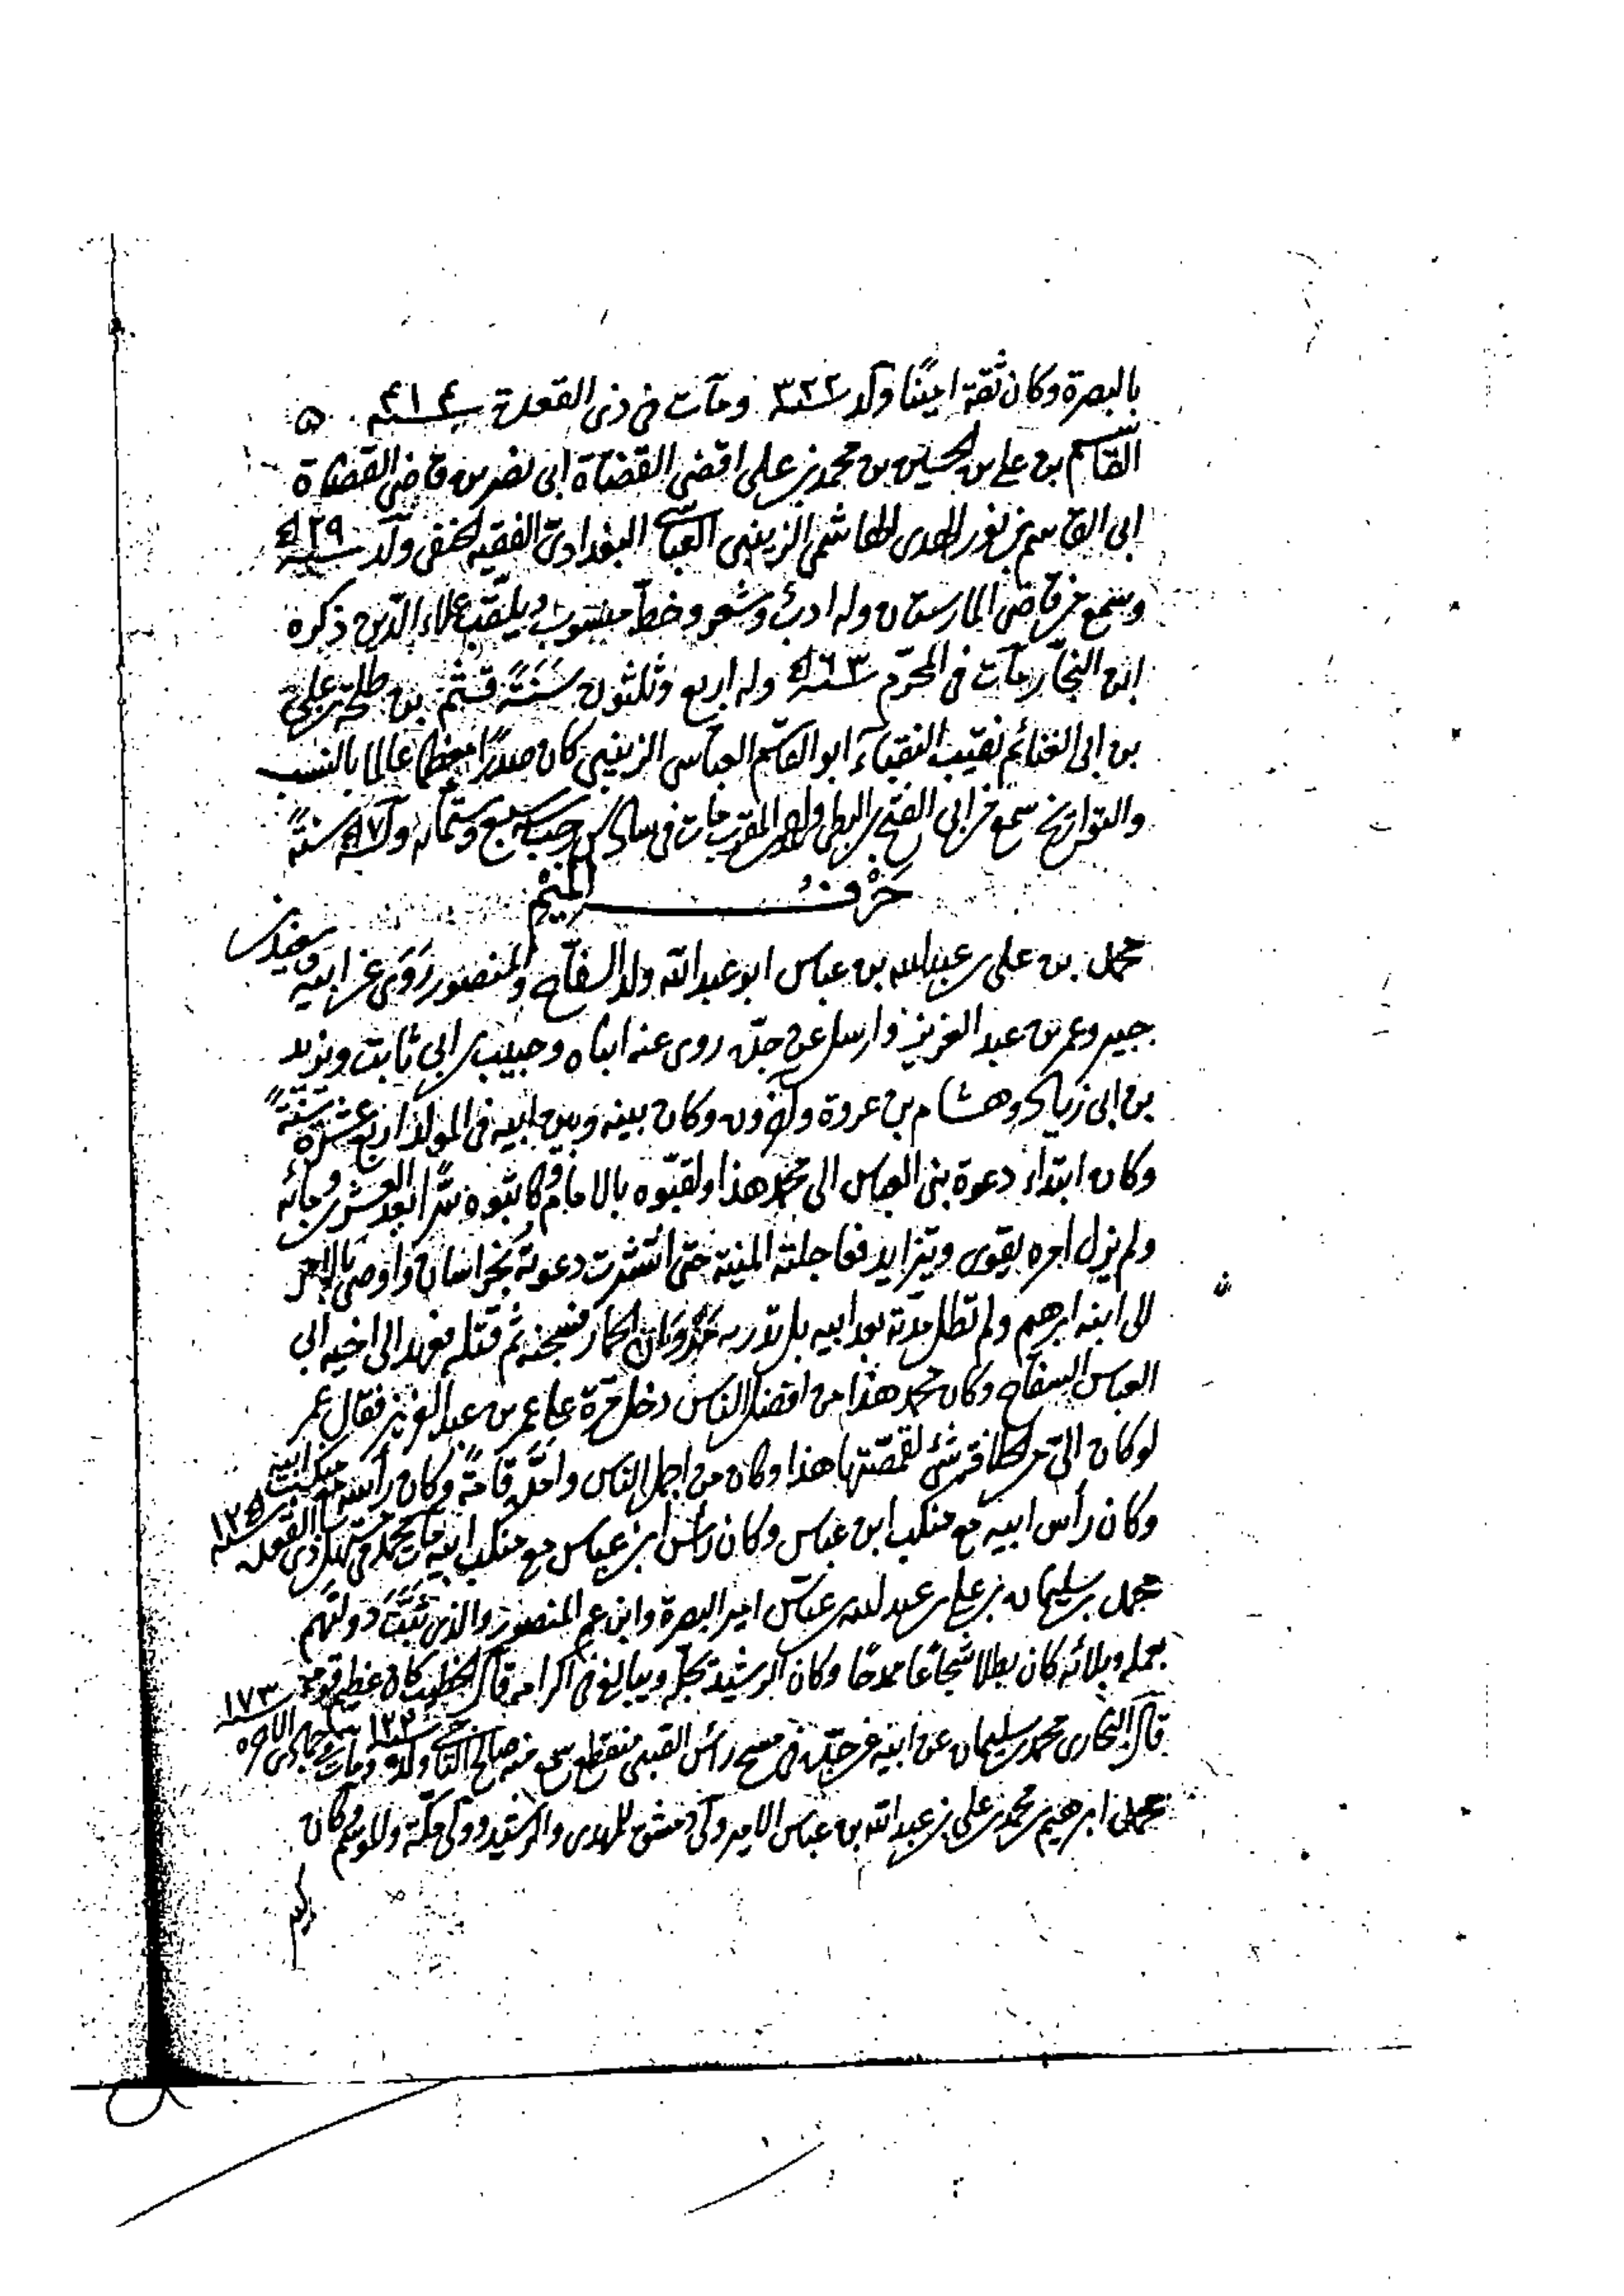 بالبصرة وكان ثقة امينًا ولد سنة ٣٢٢ ومات فى ذى القعدة سنة ٤١٤
القاسم بن على بن الحسين بن محمد بن على اقضى القضاة ابى نصر بن قاضى القضاة
ابى القاسم بن نور الهدى الهاشمى الزينبى العباسى البغدادى الفقيه الحنفى ولد سنة
وسمع من قاضى المارستان وله ادب وشعر وخط منسوب ويلقب علاء الدين ذكره
ابن النجار مات فى المحرم سنة وله اربع وثلثون سَنَةً قثم بن طلحة بن على
بن ابى الغنائم نقيب النقباء ابو القاسم العباسى الزينبى كان صدرًا معظما عالما بالنسب
والتواريخ سمع من ابى الفتح بن البطى مات فى سادس رجب سنة سبع وستمائة وله سنةً
حَرْفُ الميم
محمد بن على بن عبد الله بن عباس ابو عبد الله ولد السفاح والمنصور رَوَى عن ابيه وسعيد بن
جبير وعمر بن عبد العزيز وارسل عن جده روى عنه ابناه وحبيب بن ابى ثابت ويزيد
بن ابى زياد وهشام بن عروة وآخرون وكان بينه وبين ابيه فى المولد اربع عشرة سَنَةً
وكان ابتداء دعوة بنى العباس الى محمد هذا ولقبّوه بالامام وكاتبوه سرًّا بعد العشرين ومائة
ولم يزل امره يقوى ويتزايد فعاجلته المنية حتى انتشرت دعوته بخراسان واوصى بالامر
الى ابنه ابرهيم ولم تطل مدّته بعد ابيه بل بدر به مَروان الحمار فسجنه ثم قتله فعهد الى اخيه ابى
العباس السفاح وكان محمد هذا من افضل الناس دخل مرة على عمر بن عبد العزيز فقال عمر
لو كان الىّ من الخلافة شئ لقمصتها هذا وكان من اجمل الناس وامدّه قامةً وكان رأسه مع منكب ابيه
وكان رأس ابيه مع منكب ابن عباس وكان رأس ابن عباس مع منكب ابيه مات محمد فى مستهل ذى القعدة سنة ١٢٥
محمد بن سليمان بن على بن عبد الله بن عباس امير البصرة وابن عم المنصور والذى ثبتت دولتهم
بعمله وبلائه كان بطلا شجاعًا ممدحًا وكان الرشيد يجلّه ويبالغ فى اكرامه قال الخطيب كان عظيم قومه
قال البخارى محمد بن سليمان عن ابيه عن جدّه فى مسح رأس الصبى منقطع سمع منه صالح الناجى ولد سنة ١٢٢ ومات فى جمادى الآخره سنة ١٧٣
محمد بن ابرهيم بن محمد بن على بن عبد الله بن عباس الامير ولى دمشق للمهدى والرشيد وولى مكّة والموسم وكان